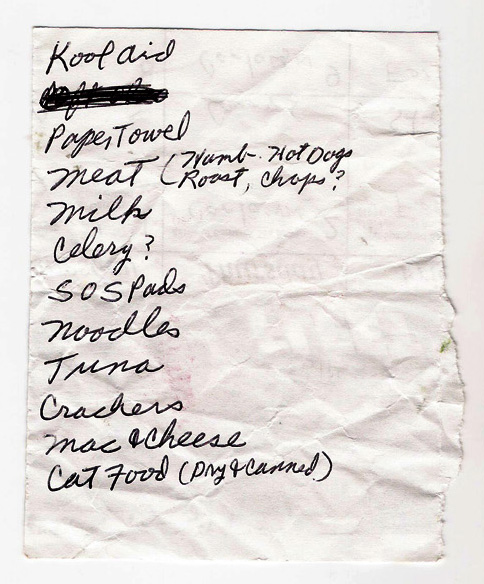 Kool aid
Paper Towel
Meat (Hamb. Hot Dogs
Roast, Chops?
Milk
Celery?
SOS Pads
Noodles
Tuna
Crackers
Mac & Cheese
Cat Food (Dry & Canned)